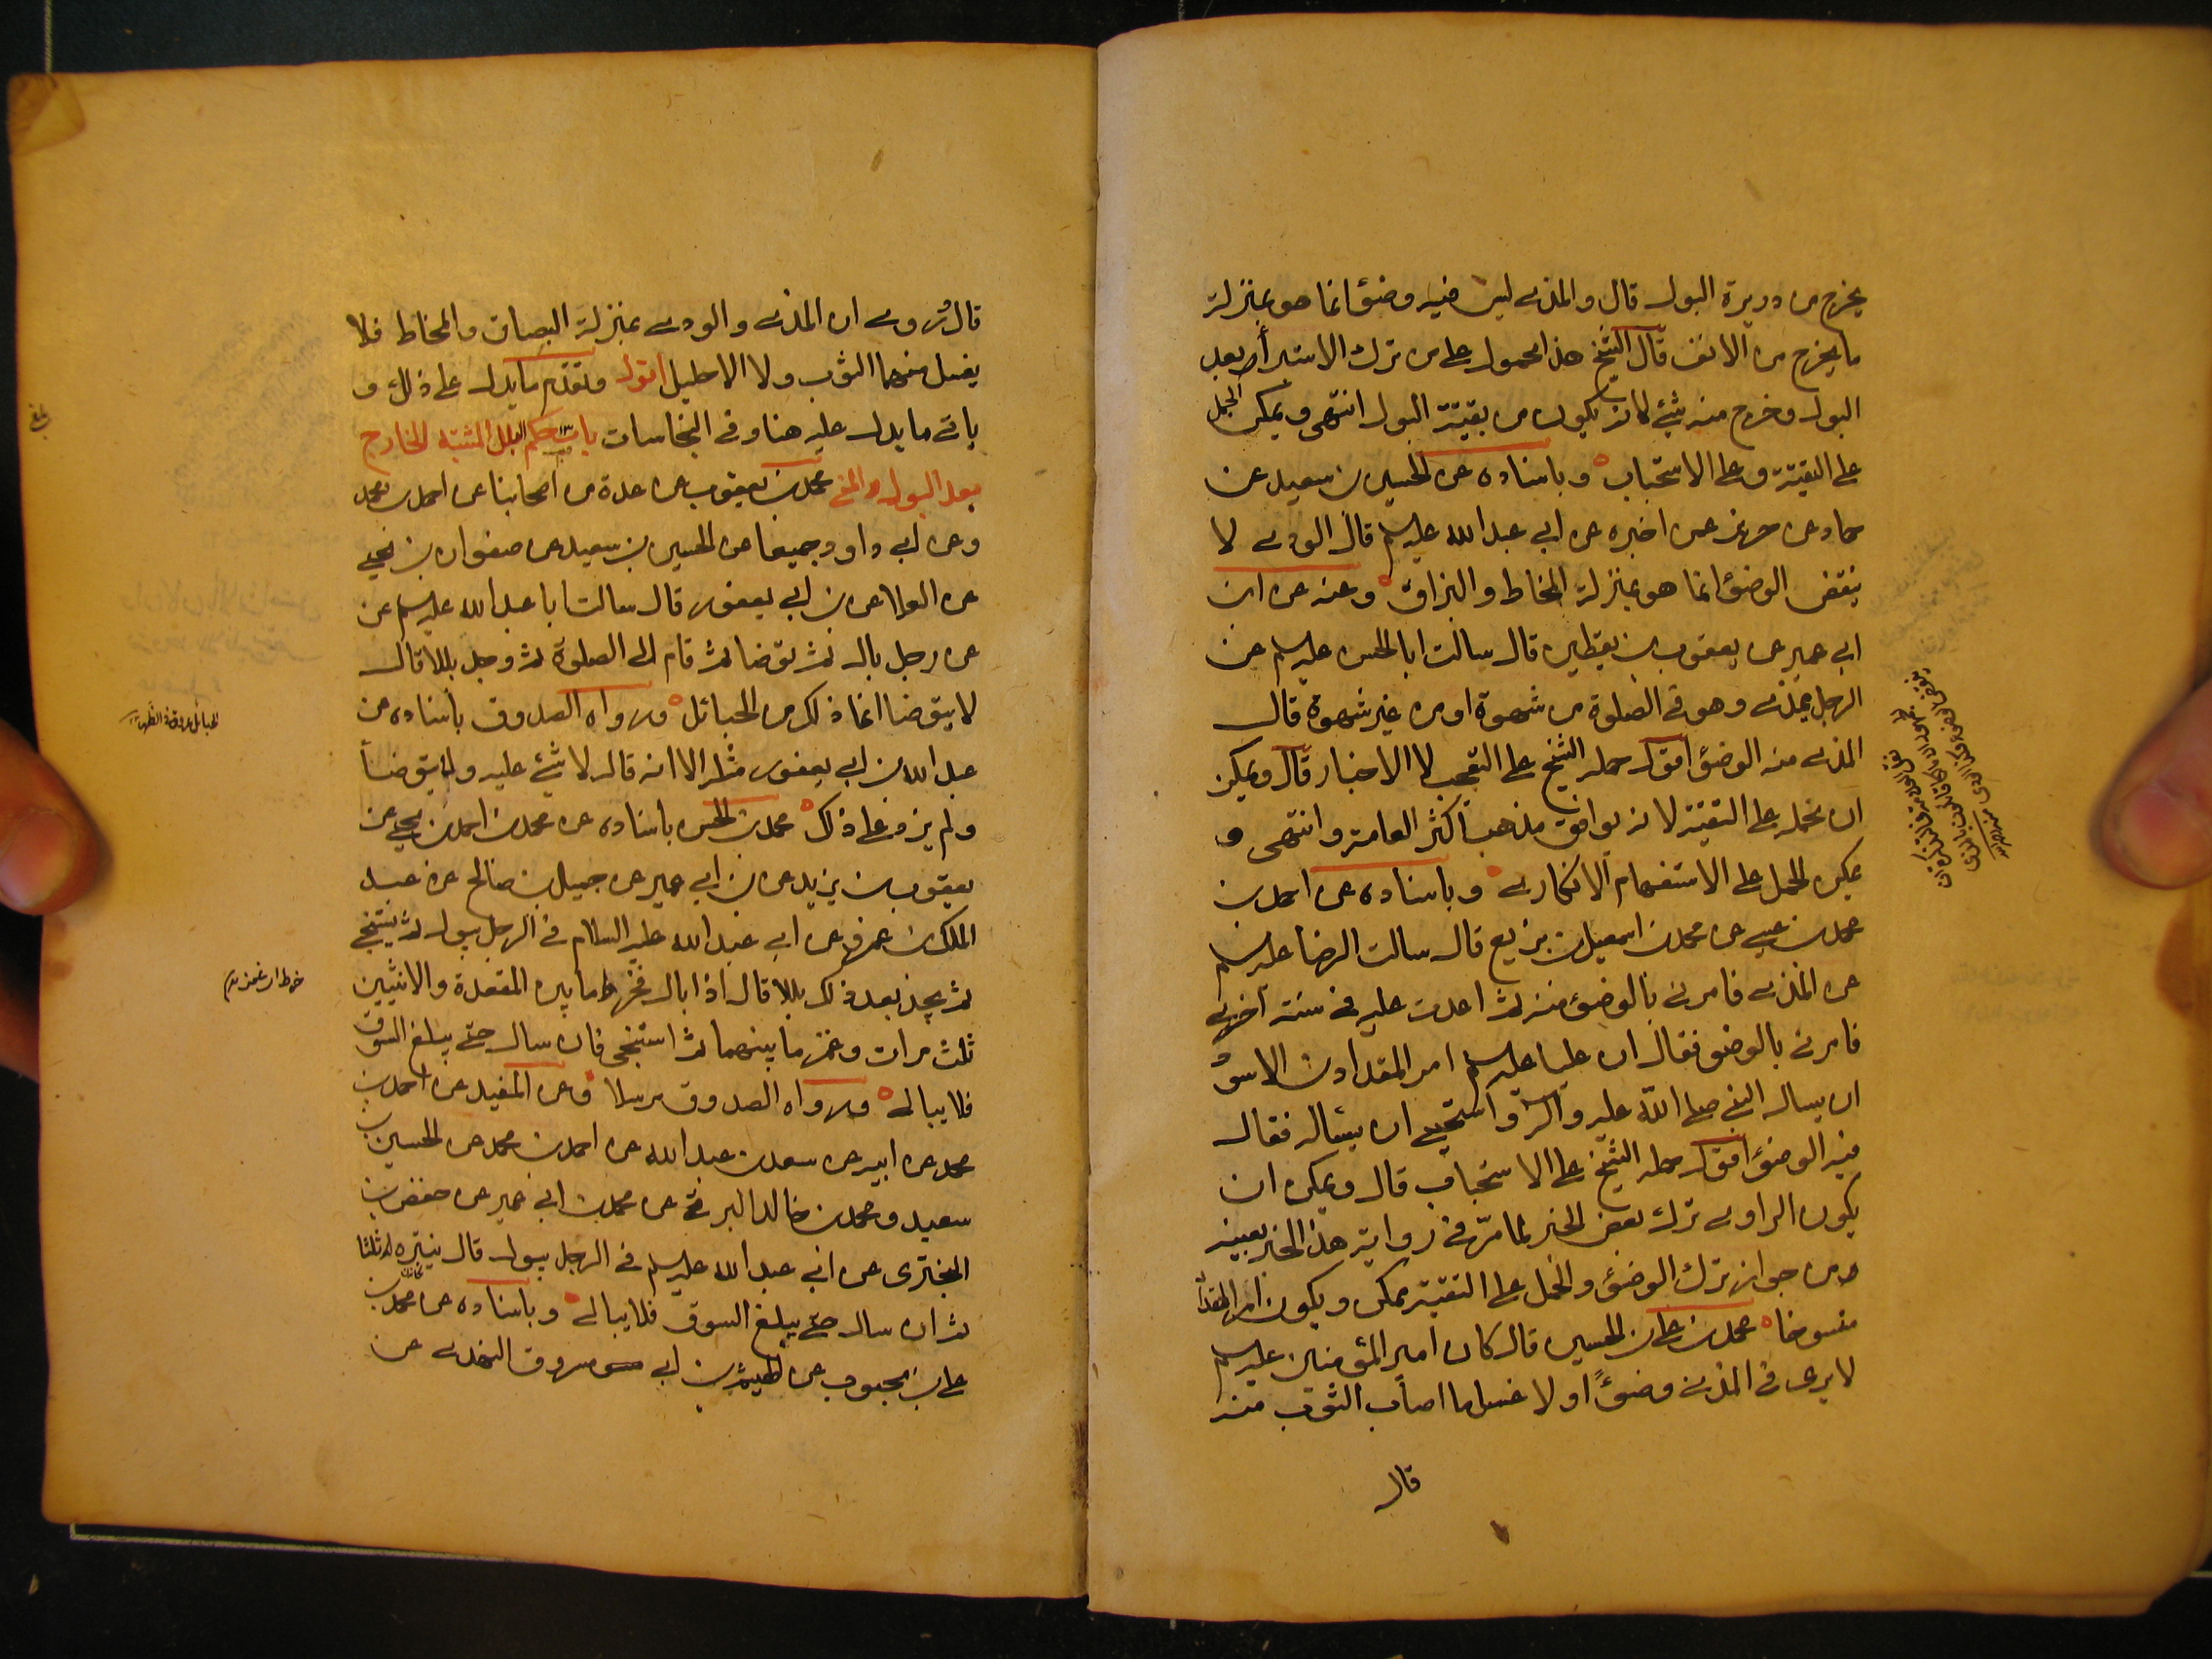 يخرج من دريرة البول قال والمذي ليس فيه وضوء انما هو بمنزلة
ما يخرج من الانف قال الشيخ هذا محمول على من ترك الاستبرأ بعد
البول وخرج منه شئ لانه يكون من بقيّة البول انتهى ويمكن الحمل
على التقيّة وعلى الاستحباب وباسناده عن الحسين بن سعيد عن
حماد عن حريز عمن اخبره عن ابي عبد الله عليه السلم قال الودي لا
ينقض الوضوء انما هو بمنزلة المخاط والبزاق وعنه عن ابن
ابي عمير عن يعقوب بن يقطين قال سالت ابا الحسن عليه السلم عن
الرجل يمذي وهو في الصلوة من شهوة او من غير شهوة قال
المذي منه الوضوء اقول حمله الشيخ على التعجب لا الاخبار قال ويمكن
ان نحمله على التقيّة لانه يوافق مذهب اكثر العامة انتهى و
يمكن الحمل على الاستفهام الانكاري وباسناده عن احمد بن
محمد بن عيسى عن محمد بن اسمعيل بن بزيع قال سالت الرضا عليه السلم
عن المذي فامرني بالوضوء منه ثم اعدت عليه في سنة اخرى
فامرني بالوضوء فقال ان عليا عليه السلم امر المقداد بن الاسود
ان يسال النبي صلى الله عليه وآله واستحيى ان يسئاله فقال
فيه الوضوء اقول حمله الشيخ على الاستحباب قال ويمكن ان
يكون الراوي ترك بعض الخبر لما مرّ في رواية هذا الخبر بعينه
من جواز ترك الوضوء والحمل على التقية ممكن ويكون امر المقداد
منسوخا محمد بن علي بن الحسين قال كان امير المؤمنين عليه السلم
لا يرى في المذي وضوءً ولا غسل ما اصاب الثوب منه
قال
قال وروي ان المذي والودي بمنزلة البصاق والمخاط فلا
يغسل منهما الثوب ولا الاحليل اقول وتقدم ما يدل على ذلك و
ياتي ما يدل عليه هنا وفي النجاسات باب حكم البلل المشتبه الخارج
بعد البول والمني محمد بن يعقوب عن عدة من اصحابنا عن احمد بن محمد
وعن ابي داود جميعا عن الحسين بن سعيد عن صفوان بن يحيى
عن العلا عن بن ابي يعفور قال سالت ابا عبد الله عليه السلم عن
عن رجل بال ثم توضا ثم قام الى الصلوة ثم وجد بللا قال
لا يتوضا انما ذلك من الحبائل ورواه الصدوق باسناده عن
عبد الله بن ابي يعفور مثله الا انه قال لا شئ عليه ولا يتوضأ
ولم يزد على ذلك محمد بن الحسن باسناده عن محمد بن احمد بن يحيى عن
يعقوب بن يزيد عن بن ابي عمير عن جميل بن صالح عن عبد
الملك بن عمرو عن ابي عبد الله عليه السلام في الرجل يبول ثم يستنجي
ثم يجد بعد ذلك بللا قال اذا بال فخرط ما بين المقعدة والانثيين
ثلث مرات وغمز ما بينهما ثم استنجى فان سال حتى يبلغ السوق
فلا يبالي ورواه الصدوق مرسلا وعن المفيد عن احمد بن
محمد عن ابيه عن سعد بن عبد الله عن احمد بن محمد عن الحسين بن
سعيد ومحمد بن خالد البرقي عن محمد بن ابي عمير عن حفص بن
البختري عن ابي عبد الله عليه السلم في الرجل يبول قال ينتره ثلثا
ثم ان سال حتى يبلغ السوق فلا يبالي وباسناده عن محمد بن
علي بن محبوب عن الهيثم بن ابي مسروق النهدي عن